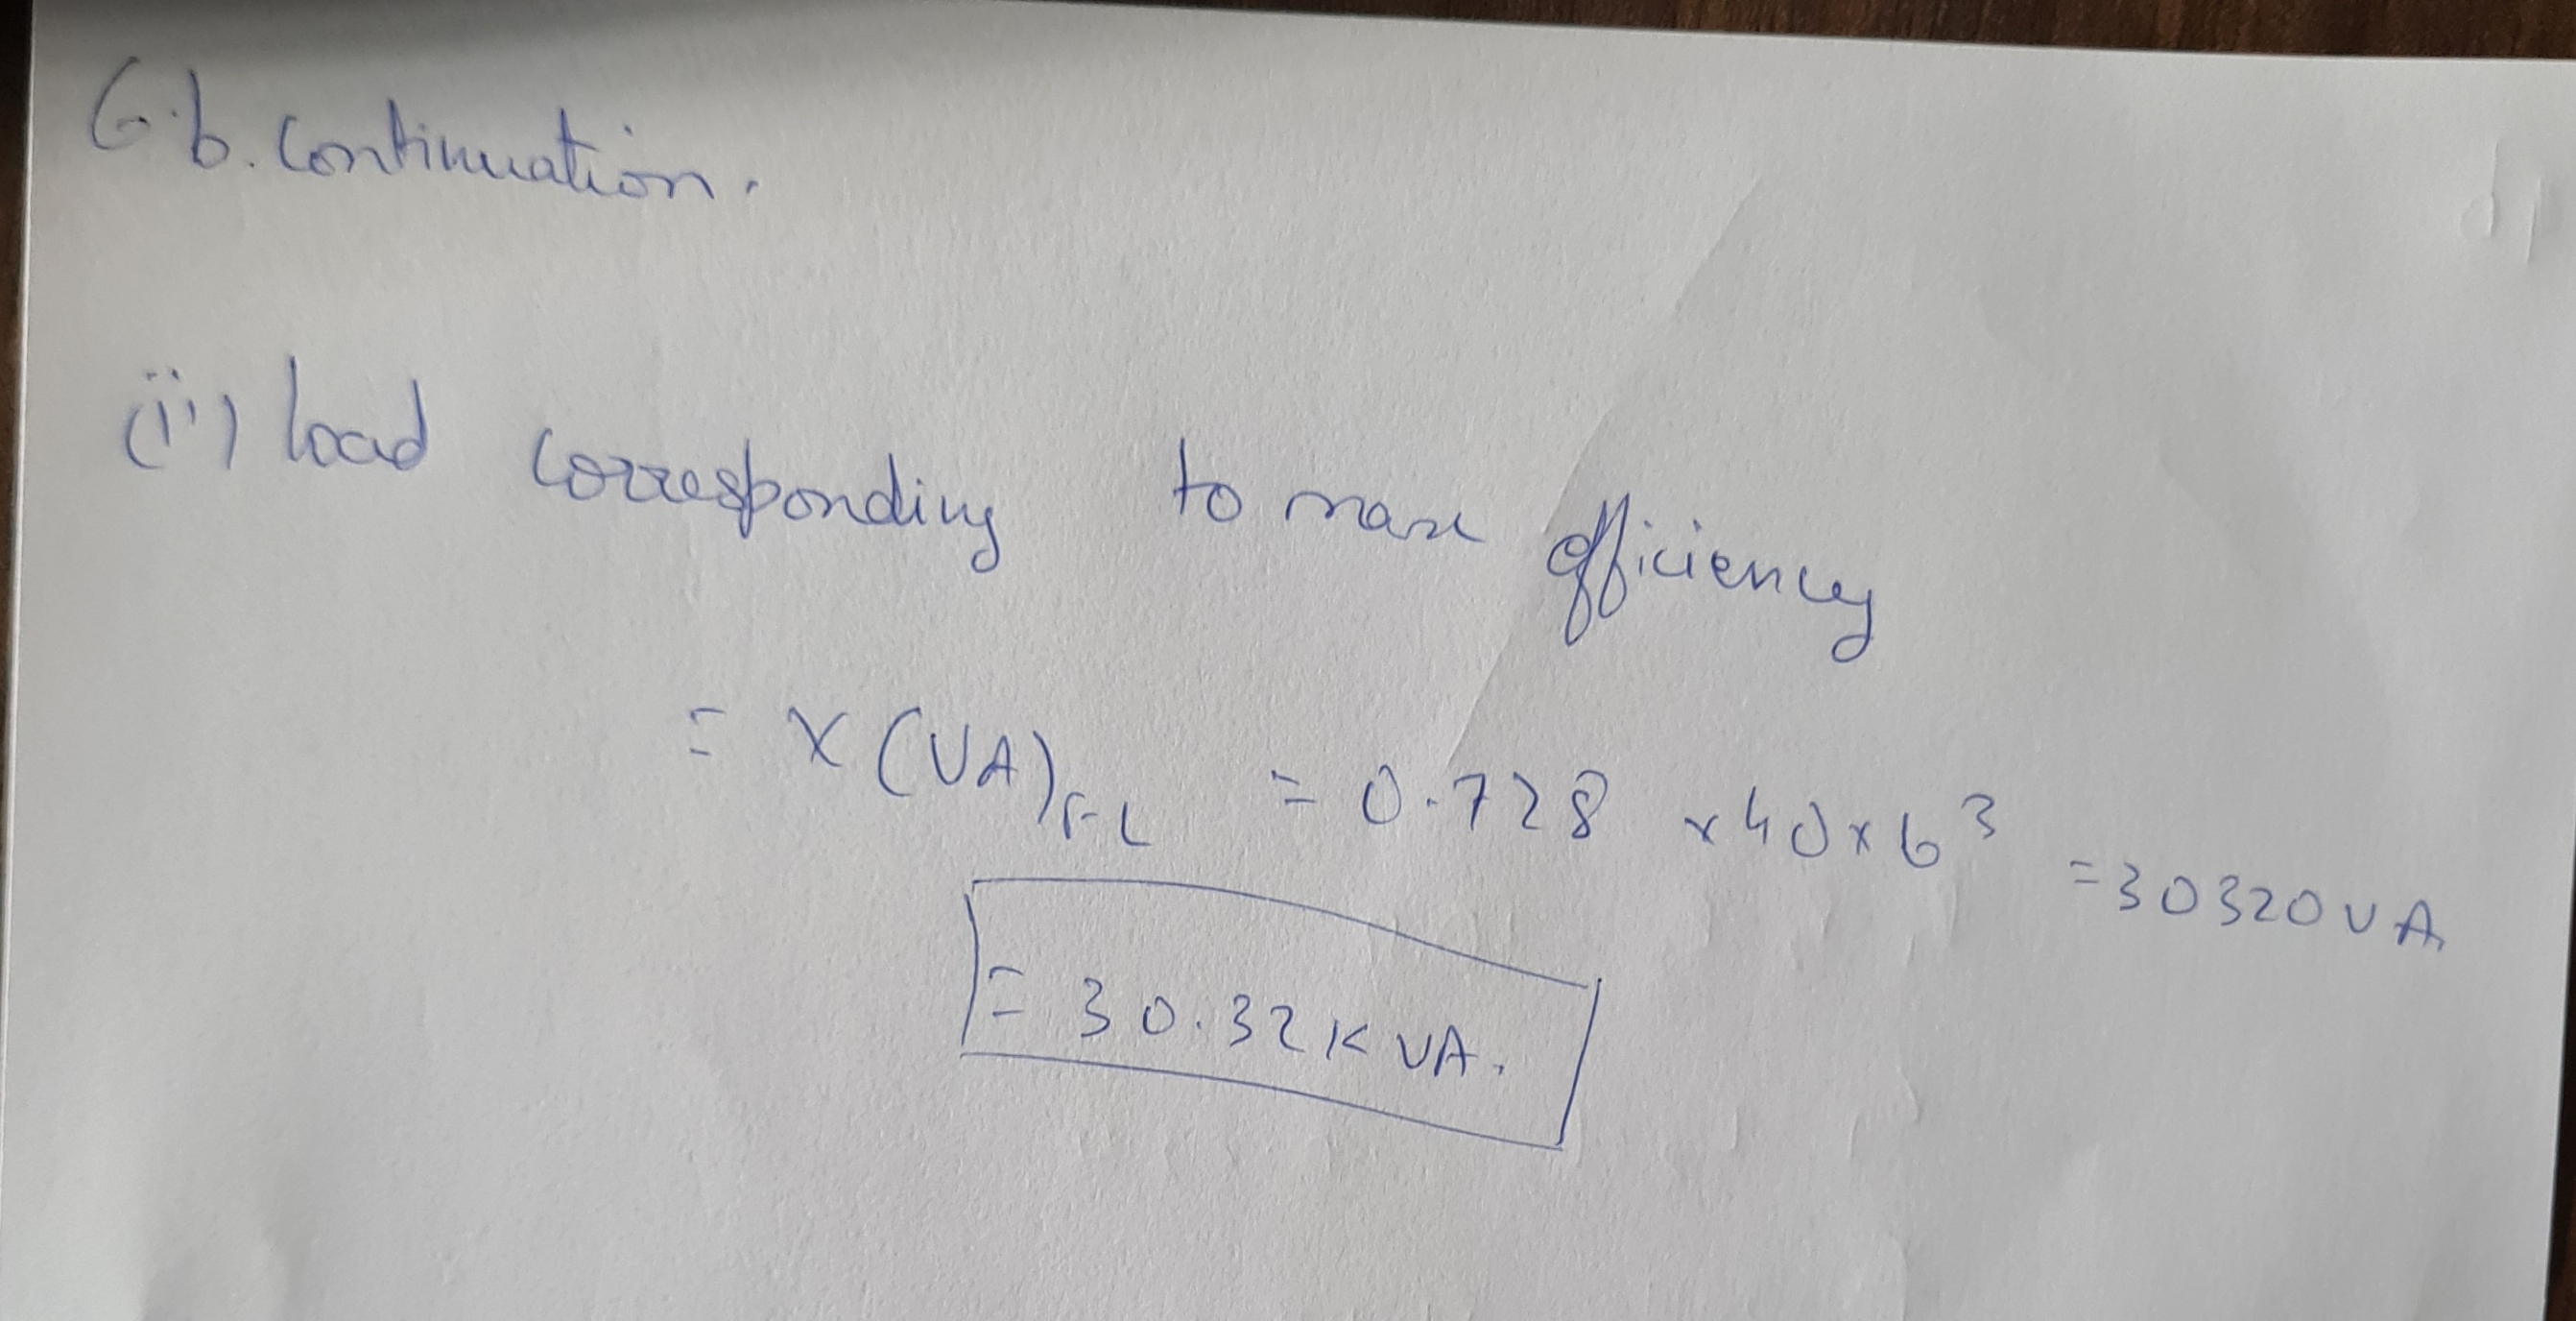 6.b. Continuation.
(ii) load corresponding to max efficiency
= x (VA)FL = 0.728 x 40 x 6³ = 30320 VA
= 30.32 K VA.